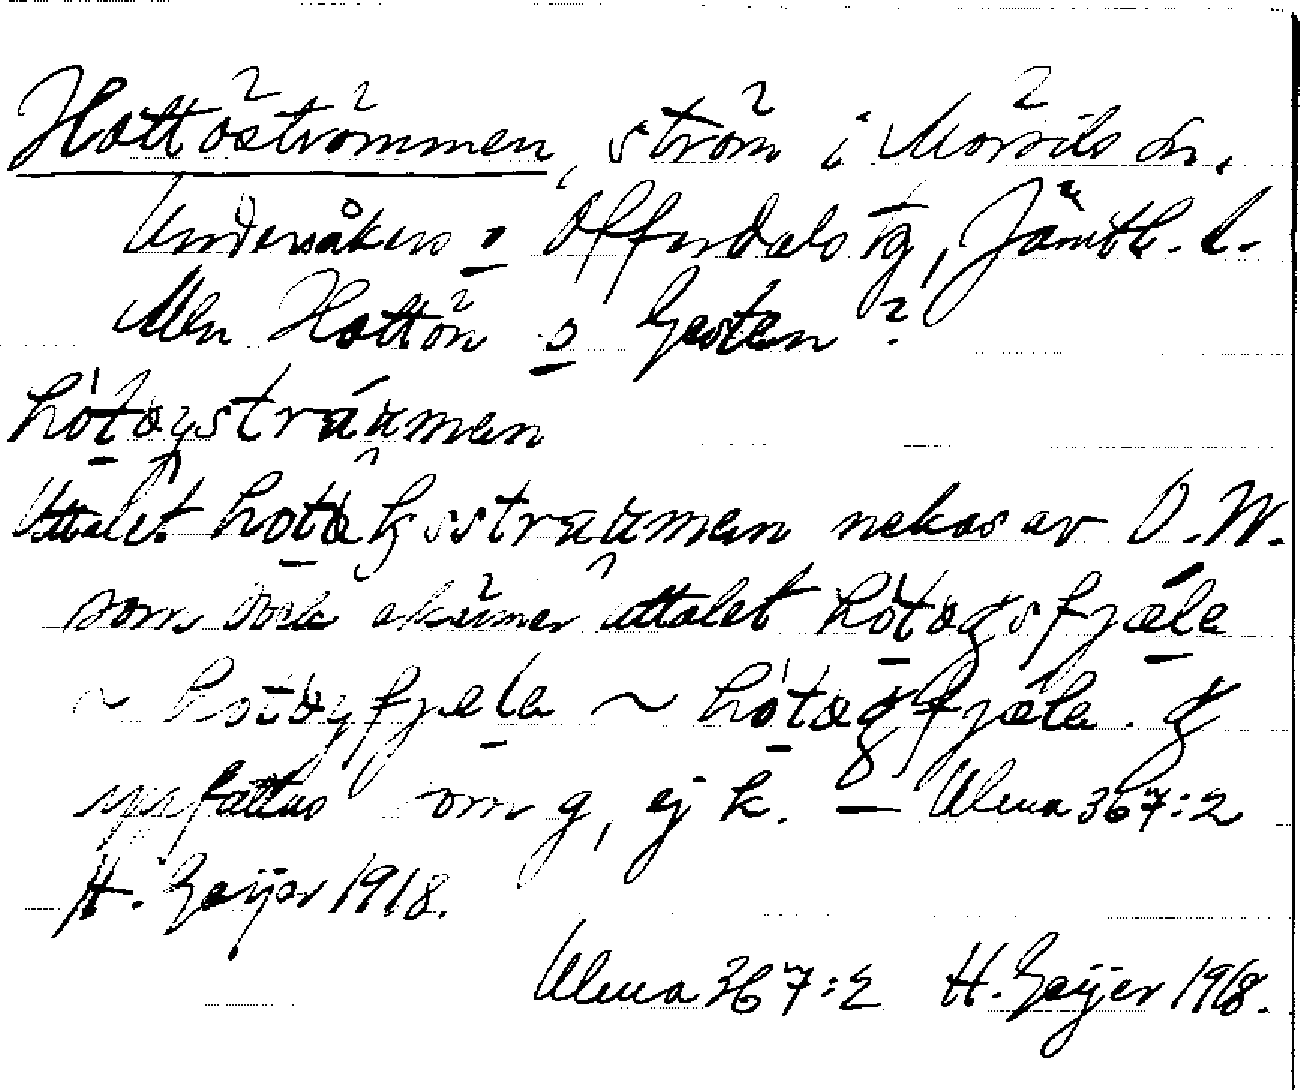 Hottöströmmen, ström i Mörsils sn,
Undersåkers o Offerdals tg, Jämtl. l.
Mln Hottön o Gesten?
hòtoγstráumen
Uttalet hotəkssträumen nekas av O.W.
som dock erkänner uttalet hòtəgsfjælɑ
~ hotəγfjælɑ ~ hòtəgfjælɑ. g
uppfattas som g, ej k. — Ulma 367:2
H. Geijer 1918.
Ulma 367:2 H. Geijer 1918.